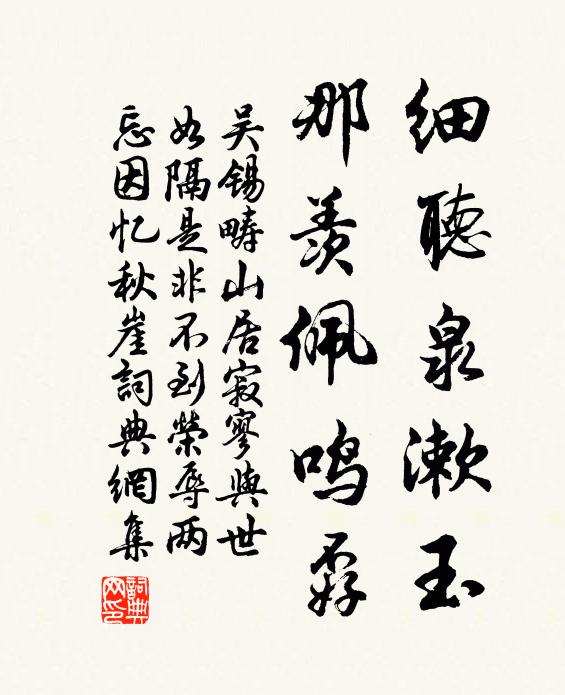 细聽泉漱玉
那羨佩鸣孱
吴锡畴山居寂寥與世
如隔是非不到榮辱两
忘因忆秋崖詞典網集
詞典网印